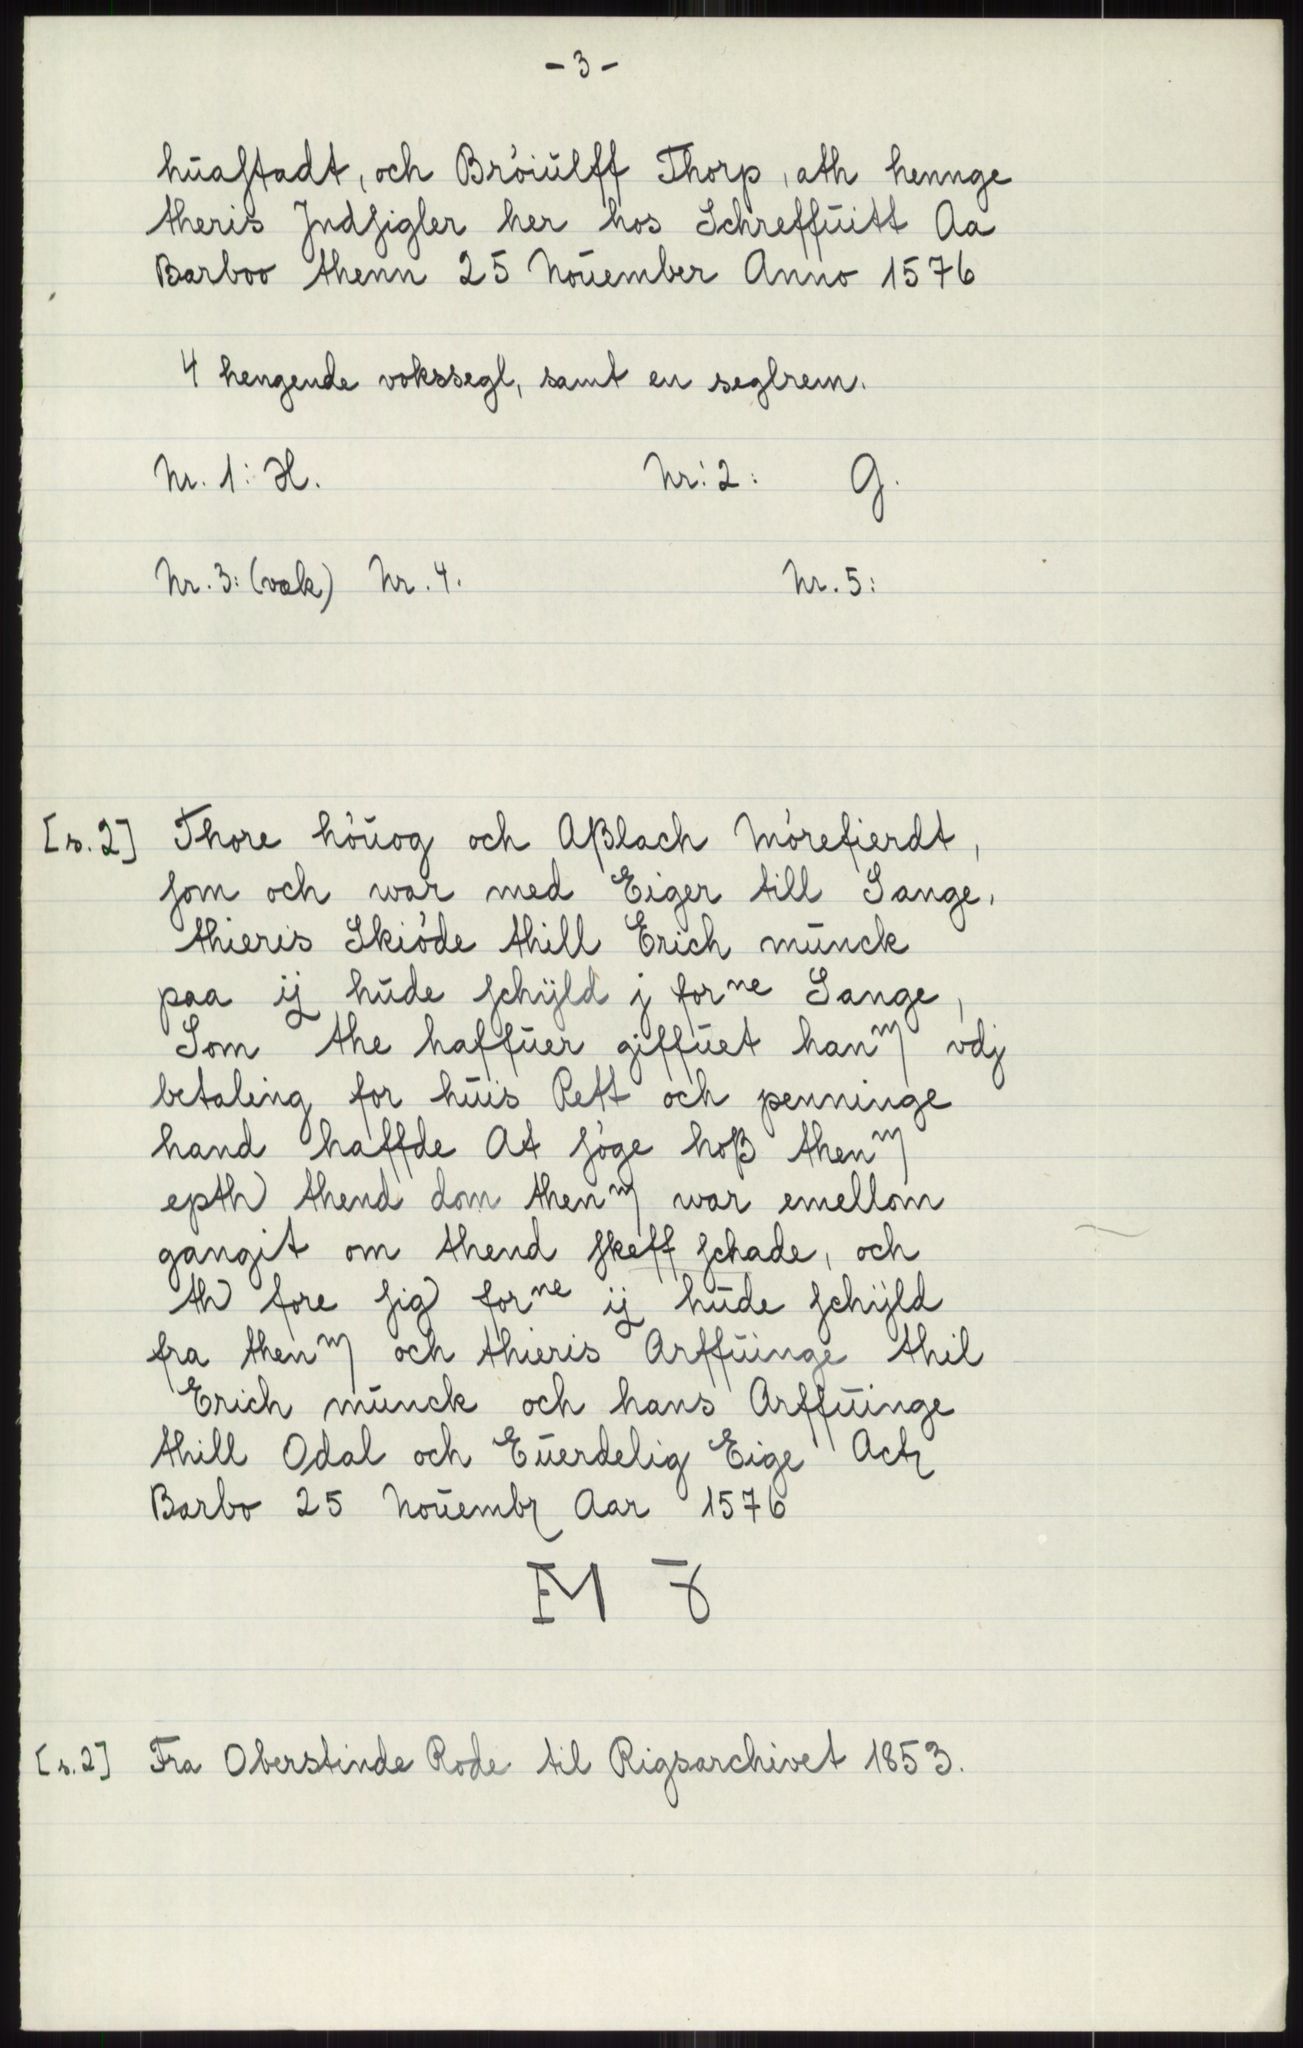 - 3 -
hūaſtadt, och Bróiūlff Thorp, ath hennge
theris Jndſigler her hos Schreffūitt Aa
Barboo thenn 25 Noūember Anno 1576
4 hengende vokssegl, samt en seglrem.
Nr. 1: H. Nr: 2: G.
Nr. 3: (væk) Nr. 4. Nr. 5:
[s. 2] Thore hóūog och Aßlach Mórefierdt,
ſom och war med Eiger till Sange,
thieris Skióde thill Erich mūnck
paa ij hūde ſchÿld j forⁿᵉ Sange,
Som the haffūer giffūet hanᵐ vdj
betaling for hūis Rett och penninge
hand haffde At ſóge hoß thenᵐ
epth) thend dom thenᵐ war emellom
gangit om thend ſkeff ſchade, och
th) fore ſig) forⁿᵉ ij hūde ſchÿld
fra thenᵐ och thieris Arffūinge thil
Erich mūnck och hans Arffūinge
thill Odal och Eūerdelig Eige Actʒ
Barbo 25 Noūembʒ Aar 1576
EM
[s. 2] Fra Oberstinde Rode til Rigsarchivet 1853.